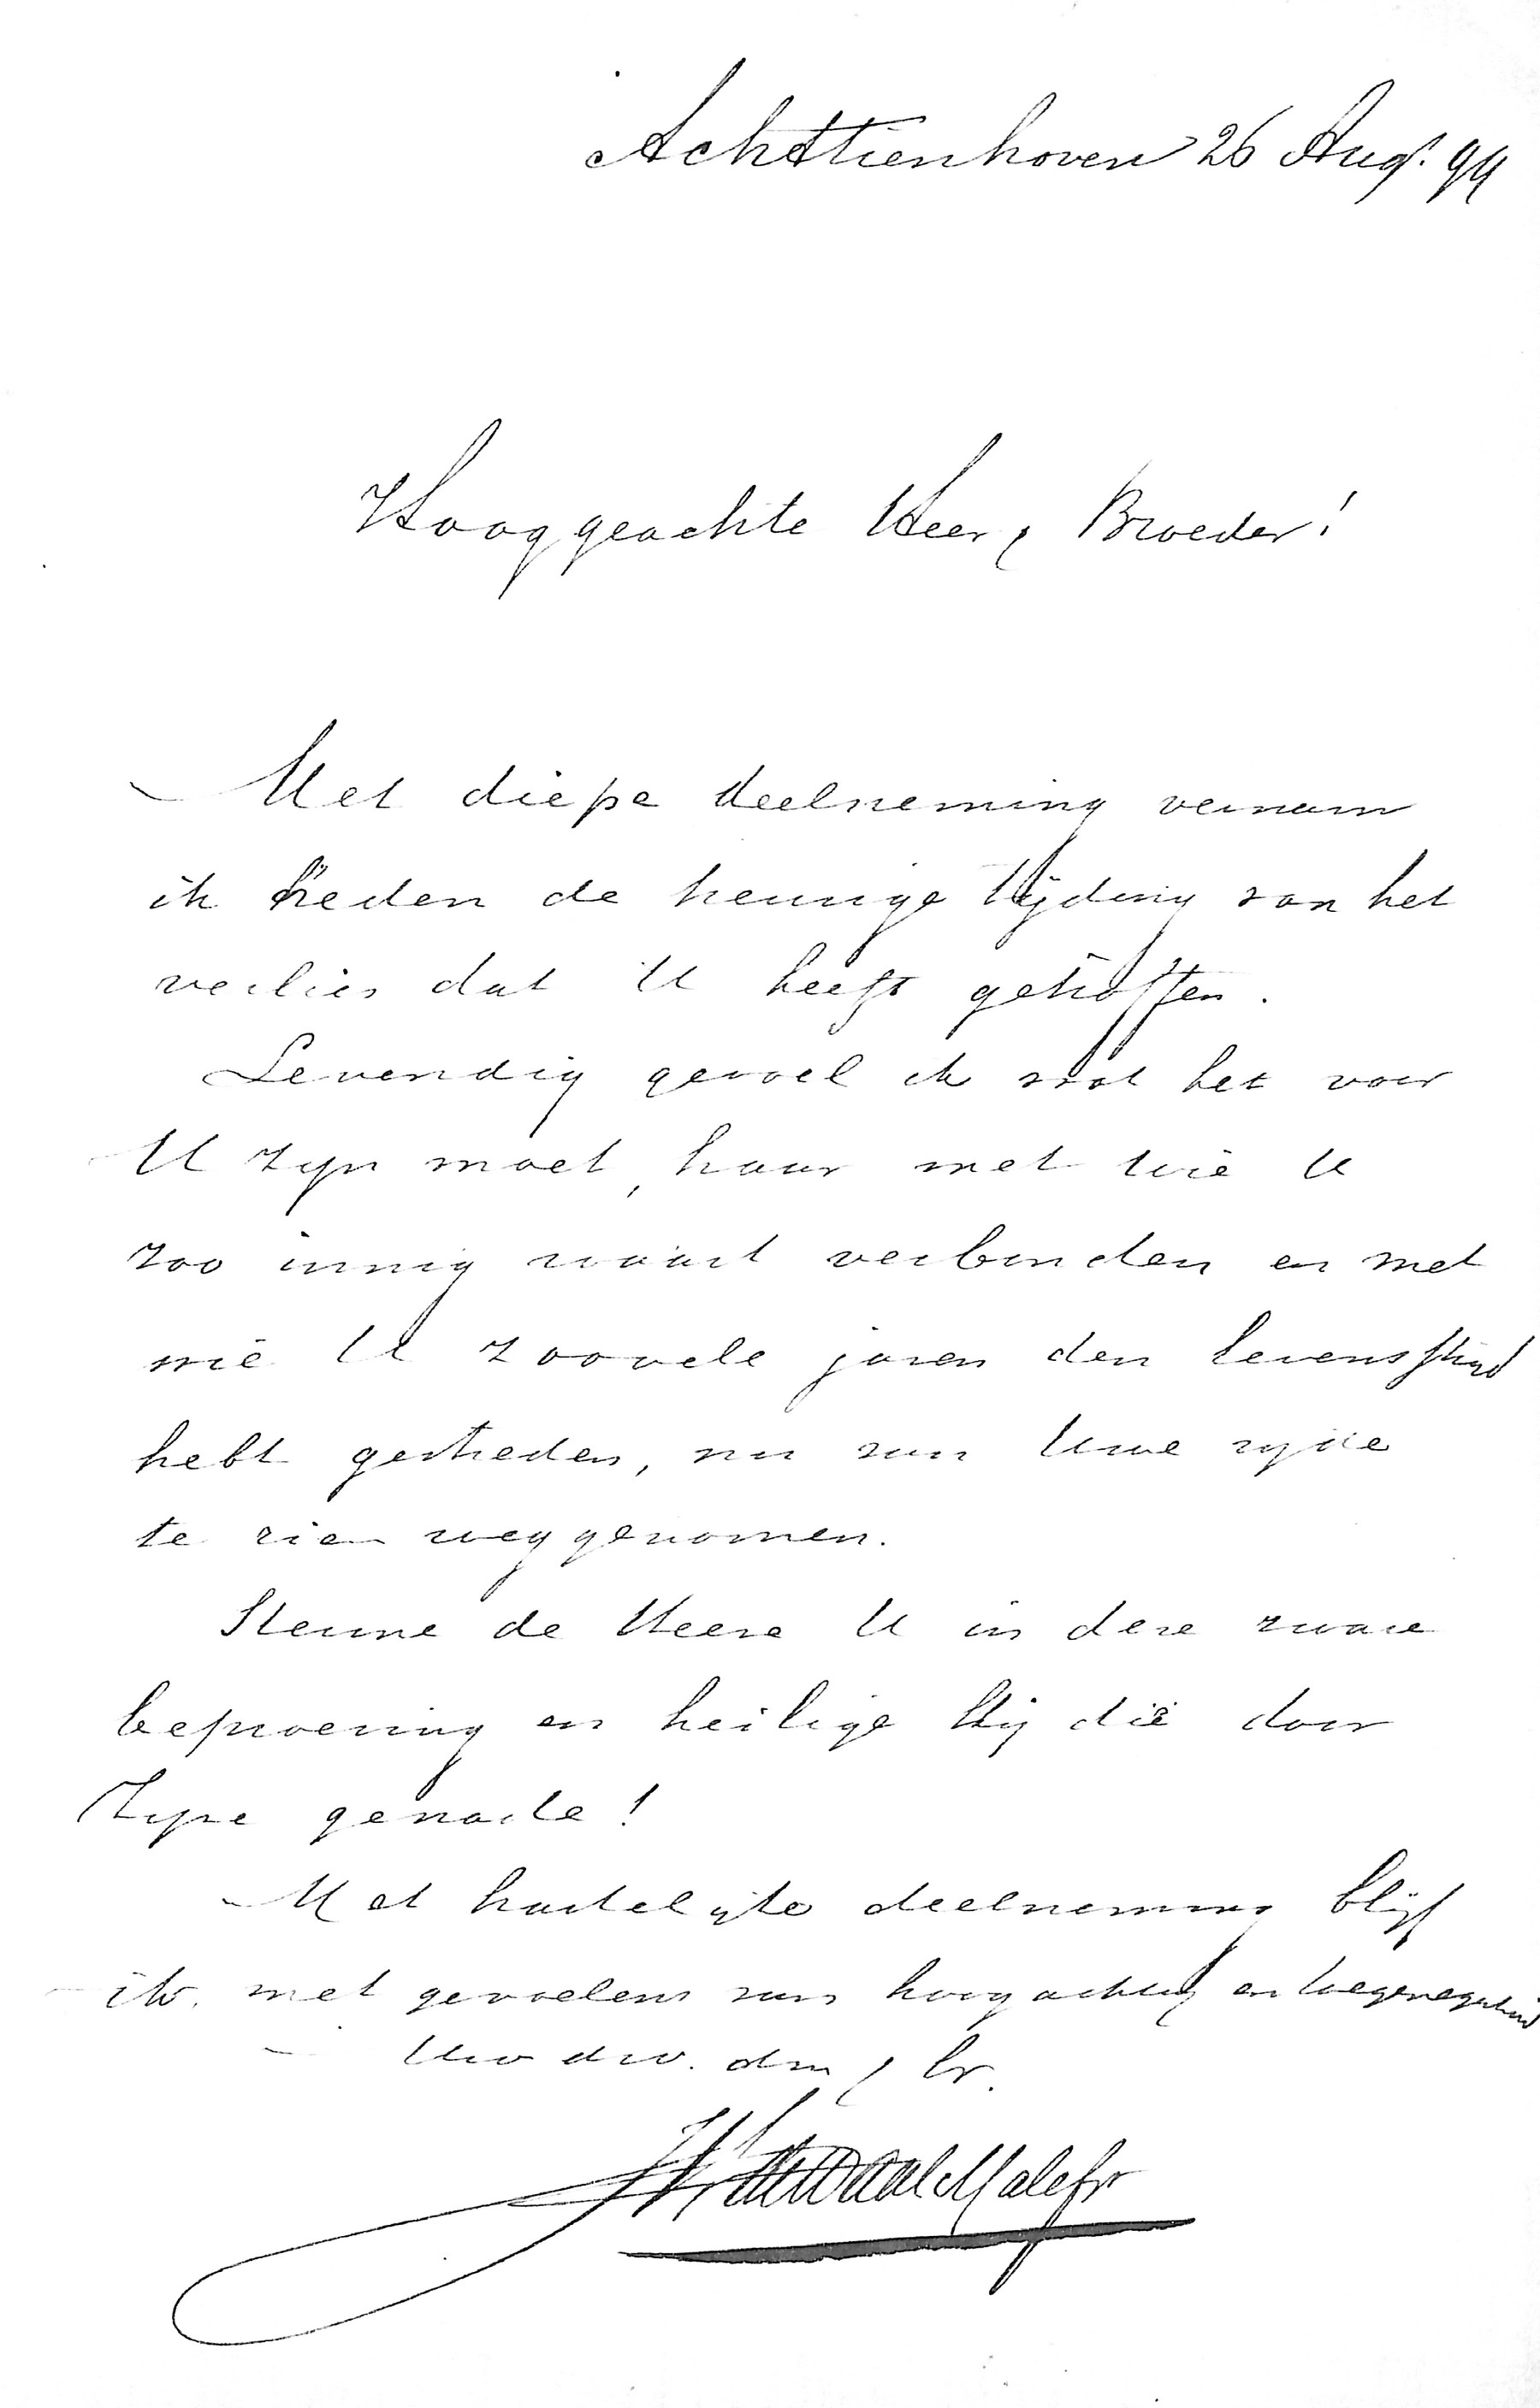 Achttienhoven 26 Aug. 99
Hooggeachte Heer & Broeder!
Met diepe deelneming vernam
ik heden de treurige tijding van het
verlies dat U heeft getroffen.
Levendig gevoel ik wat het voor
U zijn moet, haar met wie U
zoo innig waart verbonden en met
wie U zoovele jaren den levensstrijd
hebt gestreden, nu van Uwe zijde
te zien weggenomen.
Steune de Heere U in deze zware
beproeving en heilige Hij die door
Zijne genade!
Met hartelijke deelneming blijf
ik met gevoelens van hoogachting en toegenegenheid
Uw dw. dn & br.
de Waal Malefyt